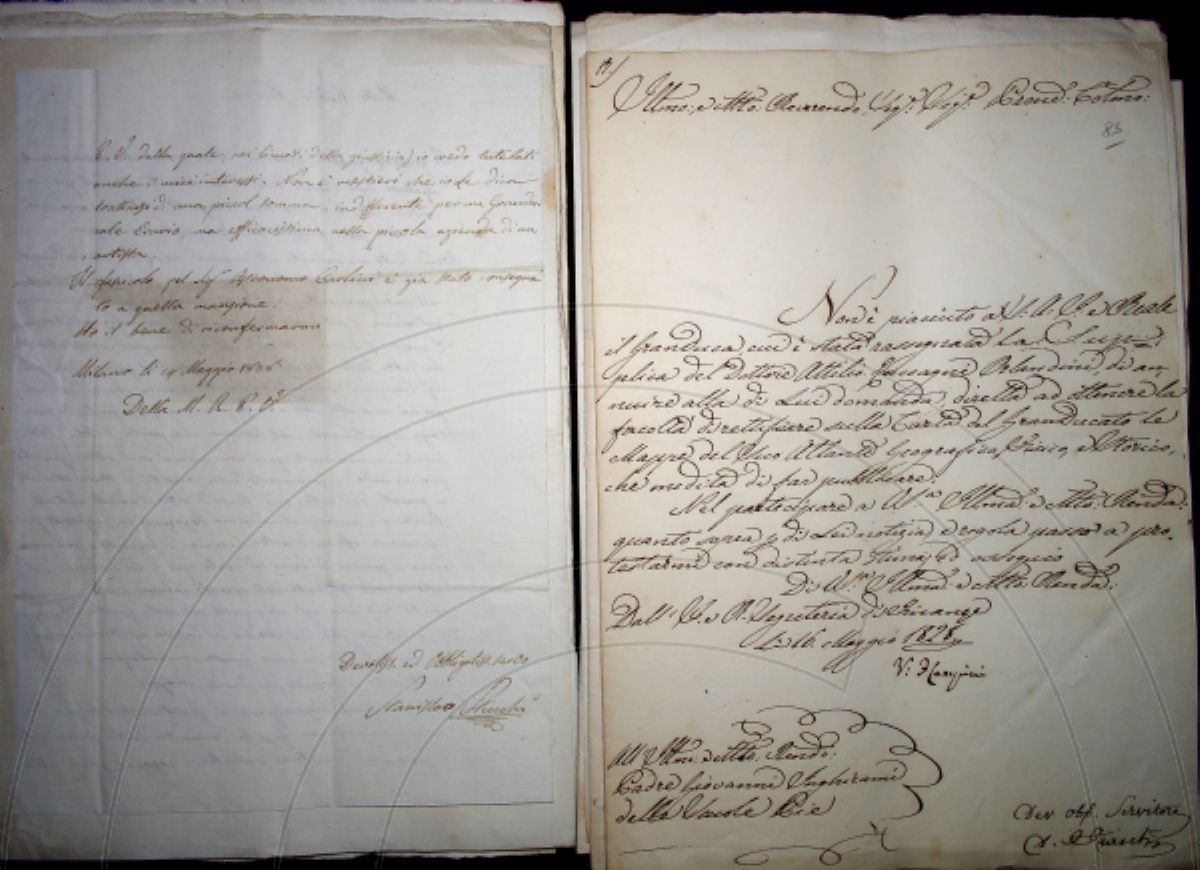 E. V. dalla quale (nei limiti della giustizia) io vedo tutelati
anche i miei interessi. Non è mestieri che io Le dica
trattarsi di una picciol somma, indifferente per un Generale
Erario, ma efficacissima nella piccola azienda di un
artista.
Il fascicolo pel Sig. Astronomo Carlini è già stato consegna-
to a quella mansione.
Ho il bene di riconfermarmi
Milano li 14 Maggio 1828
Della M. R. P. V.
Devotis. ed Obbligatis. servo
Stanislao
17)
Illmo: e Molto: Reverendo Sig.e Sig.e Prone: Colmo:
85
Non è piaciuto a S. A. I. e Reale
il Granduca cui è stata rassegnata la Sup=
plica del Dottore Attilio Zuccagni Orlandini, di an-
nuire alla di Lui domanda, diretta ad ottenere la
facoltà di rettificare sulla Carta del Granducato le
Mappe del Suo Atlante Geografico, Fisico, e Storico,
che medita di far pubblicare.
Nel partecipare a V. S. Illma: e Molto: Renda:
quanto sopra p. di Lei notizia, e regola passo a pro-
testarmi con distinta stima, ed ossequio
Di V. S. Illma: e Molto: Renda:
Dall' I. e R. Segreteria di Finanze
Li 16. Maggio 1828.
All' Illmo: e Molto: Rendo:
Padre Giovanni Inghirami
delle Scuole Pie
Dev obb. Servitore